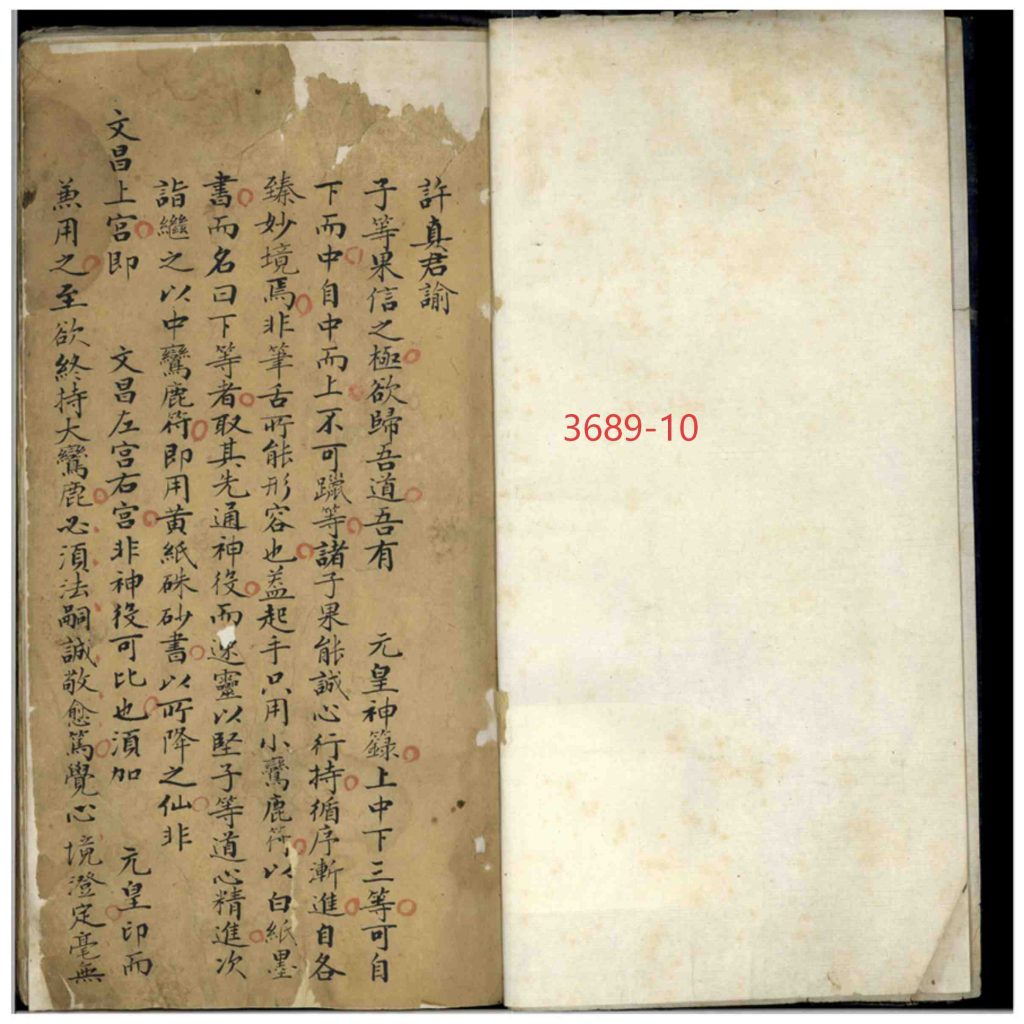 許真君諭
子等果信之極欲歸吾道吾有　元皇神籙上中下三等可自
下而中自中而上不可躐等諸子果能誠心行持循序漸進自各
臻妙境焉非筆舌所能形容也蓋起手只用小鸞鹿符以白紙墨
書而名曰下等者取其先通神役而迷靈以堅子等道心精進次
詣繼之以中鸞鹿符即用黃紙硃砂書以所降之仙非
文昌上宮即　文昌左宮右宮非神役可比也須加　元皇印而
兼用之至欲終持大鸞鹿必須法嗣誠敬愈篤覺心境澄定毫無
3689-10